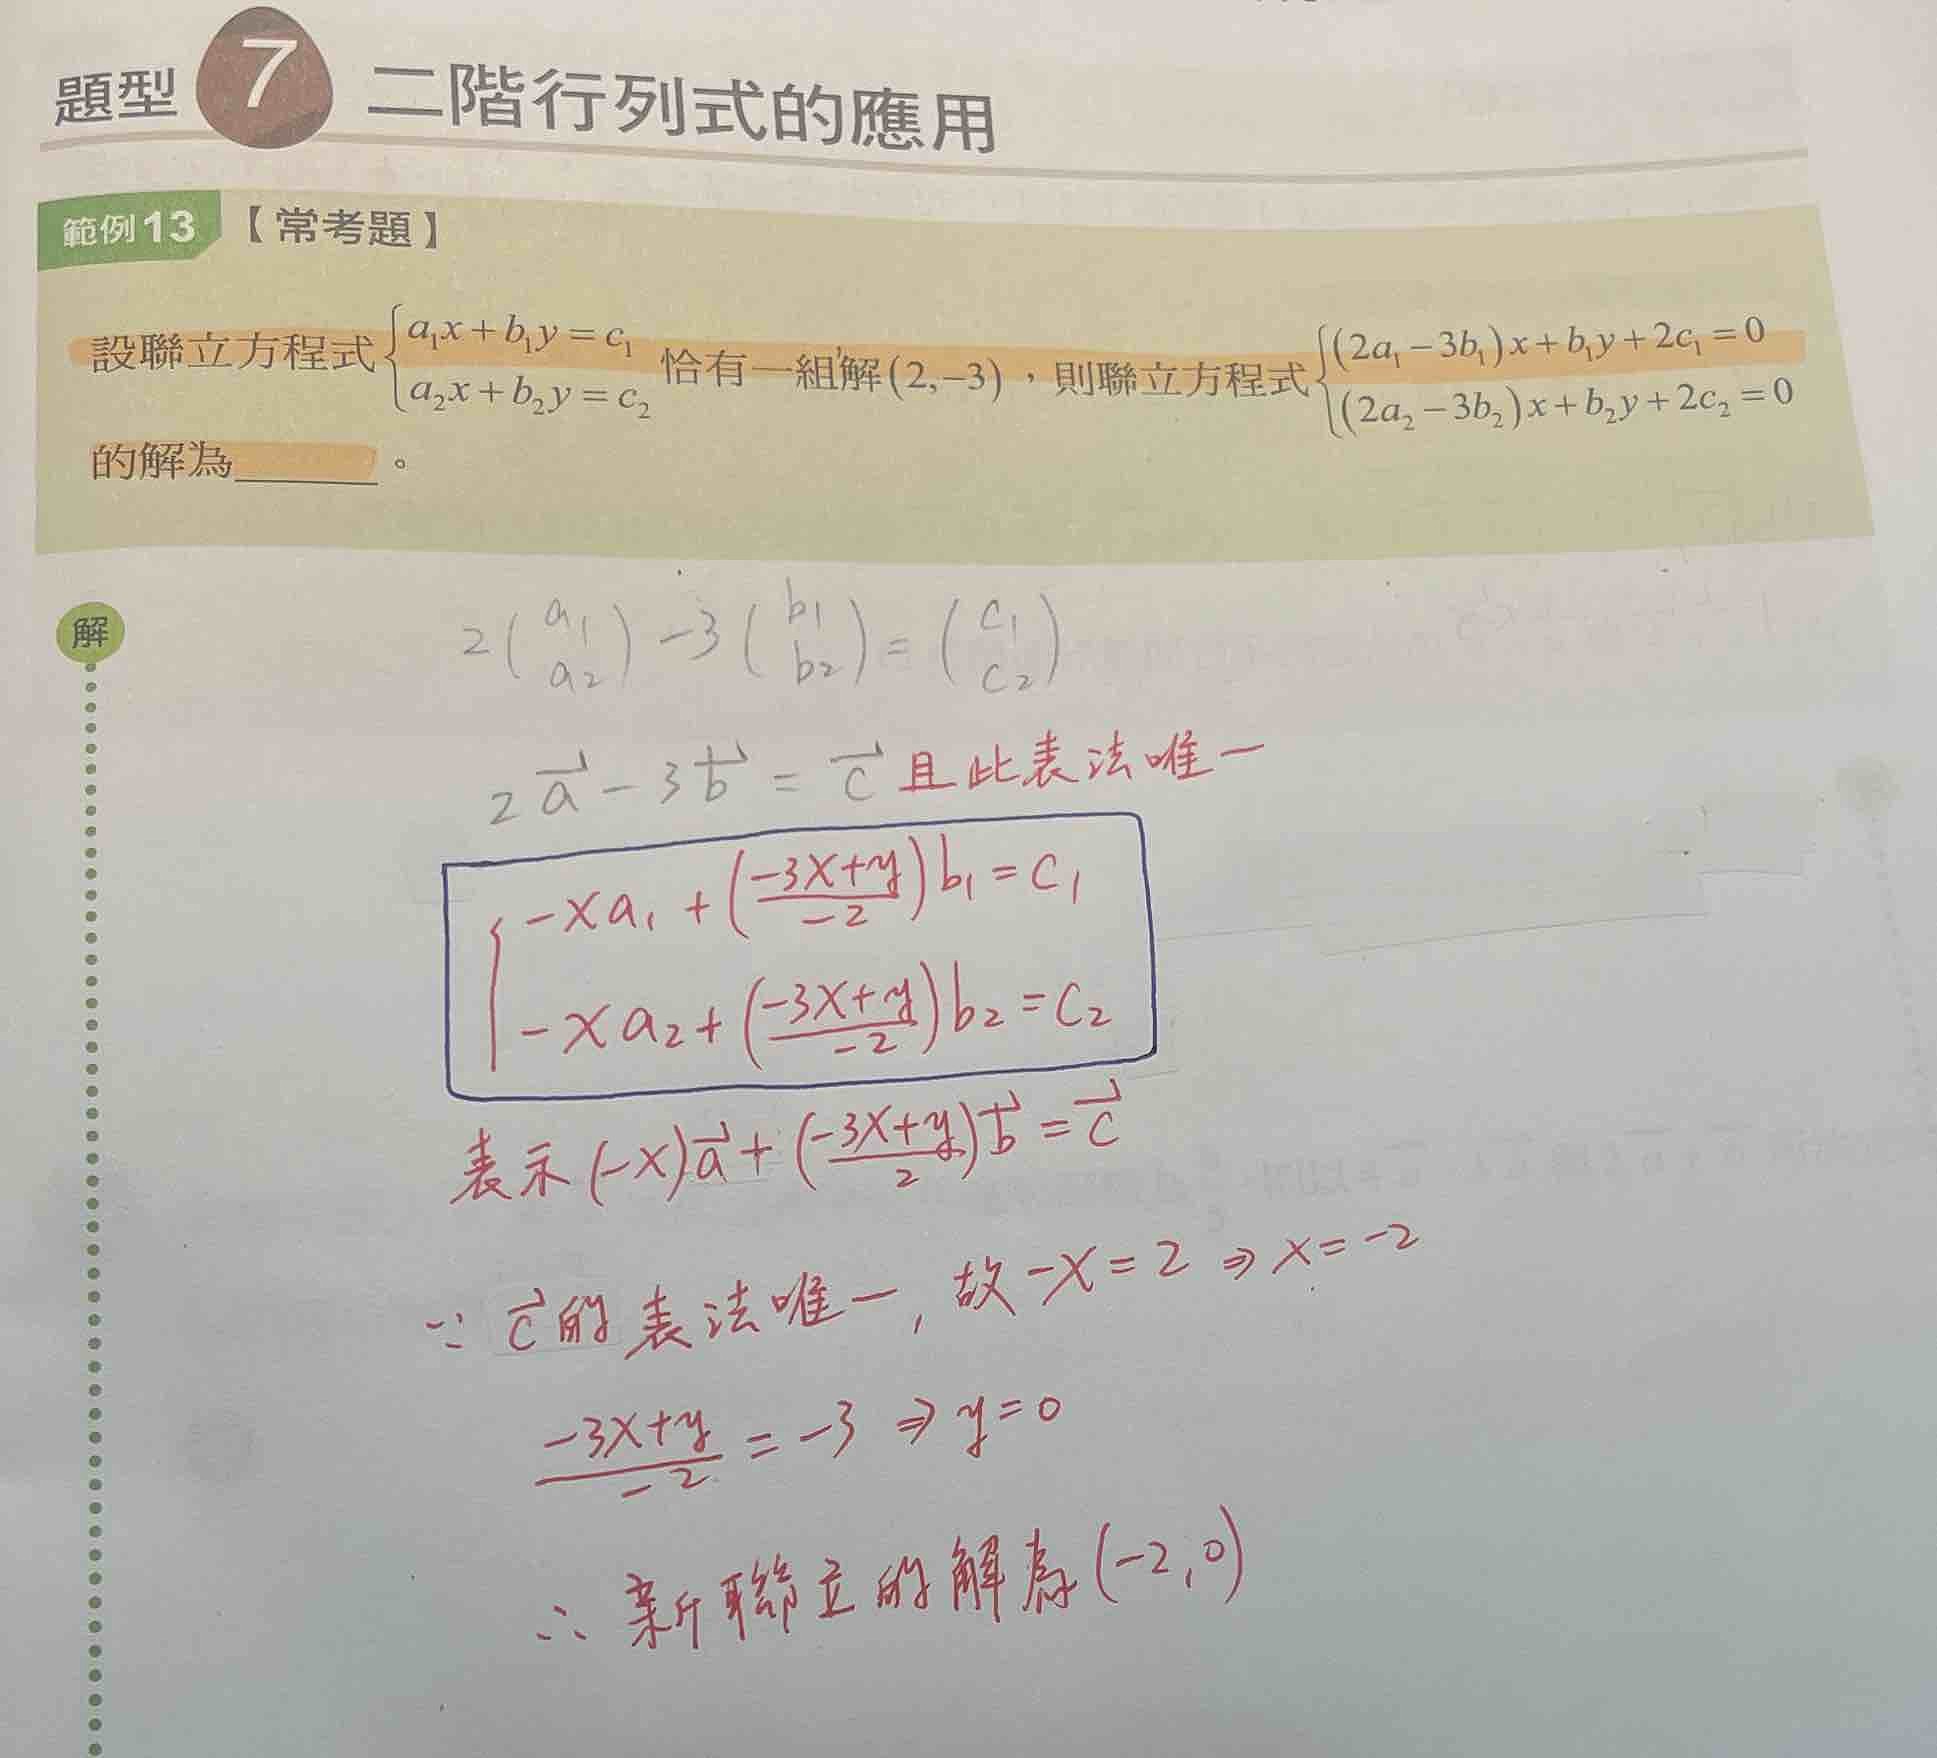 題型 7 二階行列式的應用
範例13【常考題】
設聯立方程式 { a₁x + b₁y = c₁ ; a₂x + b₂y = c₂ 恰有一組解(2,−3)，則聯立方程式 { (2a₁ − 3b₁)x + b₁y + 2c₁ = 0 ; (2a₂ − 3b₂)x + b₂y + 2c₂ = 0
的解為______。
解
2(a₁ a₂) −3(b₁ b₂) = (c₁ c₂)
2a⃗ − 3b⃗ = c⃗ 且此表法唯一
{ −xa₁ + ((−3x+y)/−2)b₁ = c₁
−xa₂ + ((−3x+y)/−2)b₂ = c₂
表示 (−x)a⃗ + ((−3x+y)/2)b⃗ = c⃗
∵ c⃗ 的表法唯一, 故 −x = 2 ⇒ x = −2
(−3x+y)/−2 = −3 ⇒ y = 0
∴ 新聯立的解為 (−2,0)